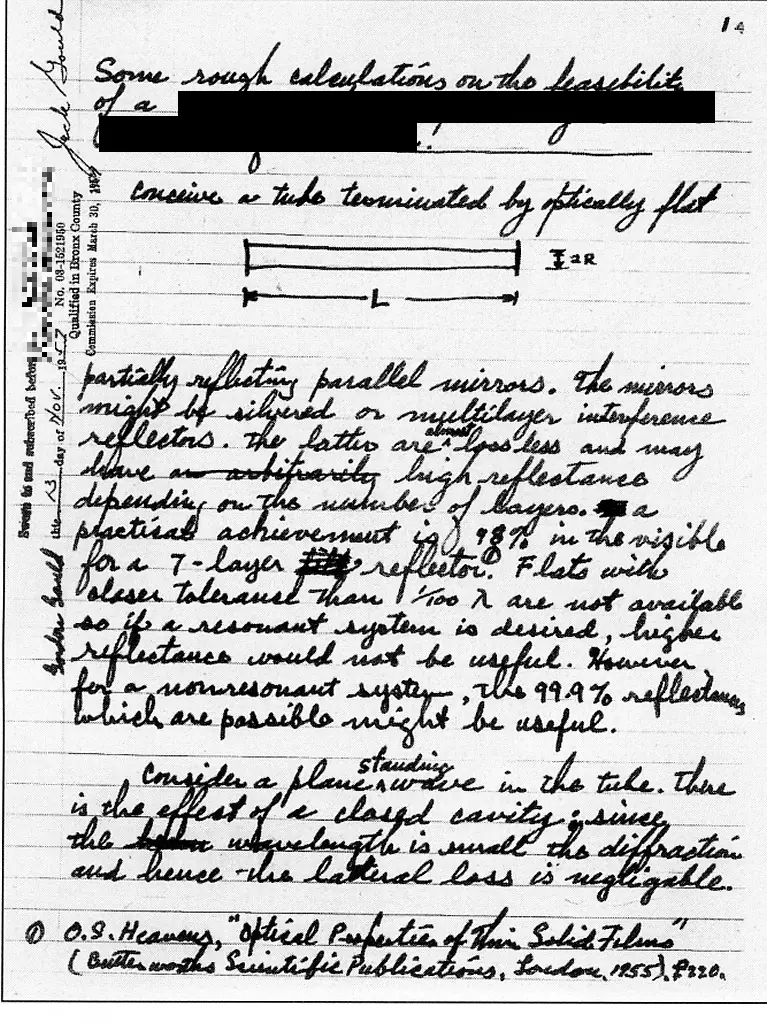 1
Some rough calculations on the feasibility
of a
!
Conceive a tube terminated by optically flat
2R
L
partially reflecting parallel mirrors. The mirrors
might be silvered or multilayer interference
reflectors. The latter are almost lossless and may
have an arbitrarily high reflectance
depending on the number of layers. a
practical achievement is 98% in the visible
for a 7-layer reflector.① Flats with
closer tolerance than 1/100 λ are not available
so if a resonant system is desired, higher
reflectance would not be useful. However,
for a nonresonant system, the 99.9% reflectances
which are possible might be useful.
Consider a plane standing wave in the tube. There
is the effect of a closed cavity; since
the wavelength is small the diffraction
and hence the lateral loss is negligable.
① O.S. Heavens, "Optical Properties of Thin Solid Films"
(Butterworths Scientific Publications, London, 1955), P220.
Jack Gould
Sworn to and subscribed before
this 13 day of Nov. 1957
No. 03-1521950
Qualified in Bronx County
Commission Expires March 30, 19
Gordon Gould